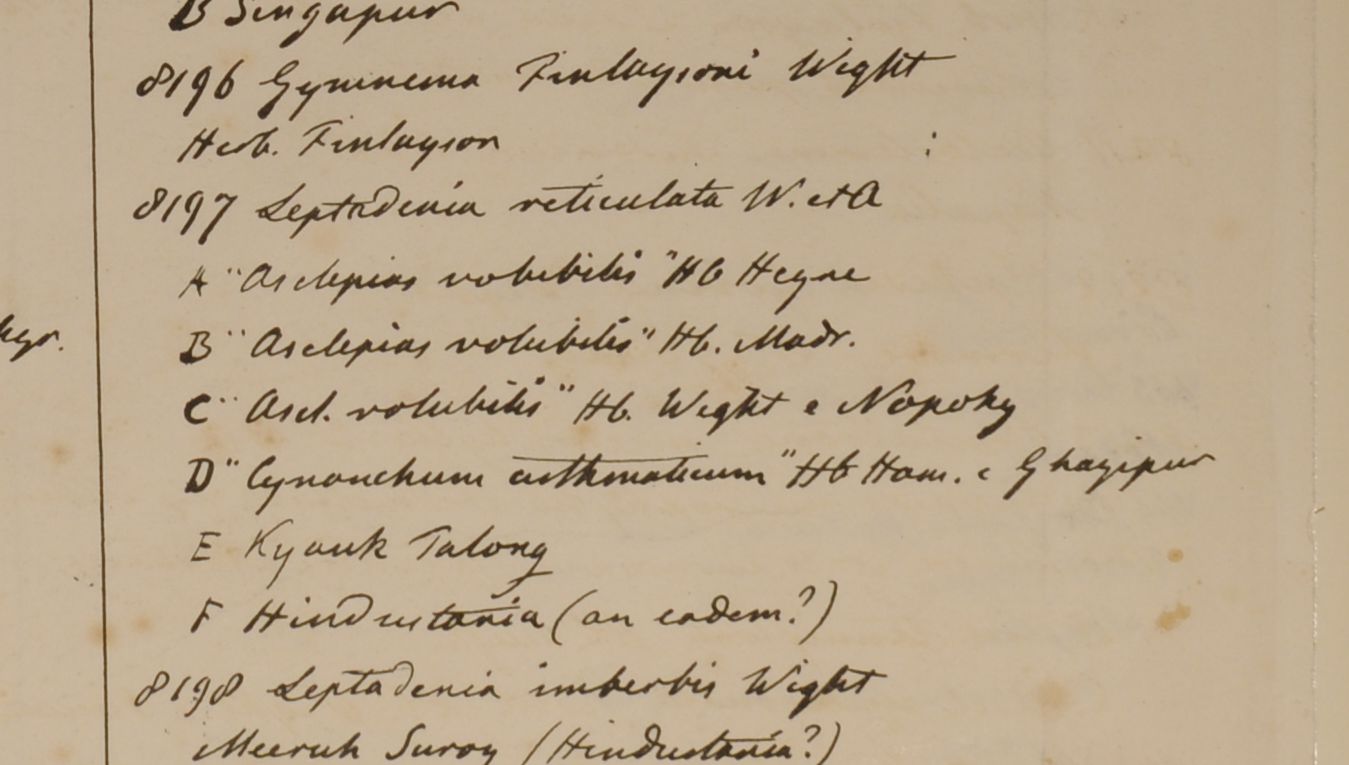 B Singapur
8196 Gymnema Finlaysoni Wight
Herb. Finlayson
8197 Leptadenia reticulata W. et A
A "Asclepias volubilis" Hb Heyne
B "Asclepias volubilis" Hb. Madr.
C "Ascl. volubilis" Hb. Wight e Nopoky
D "Cynanchum asthmaticum" Hb Ham. e Ghazipur
E Kyauk Talong
F Hindustania (an eadem?)
8198 Leptadenia imberbis Wight
Meeruh Suroy (Hindustania?)